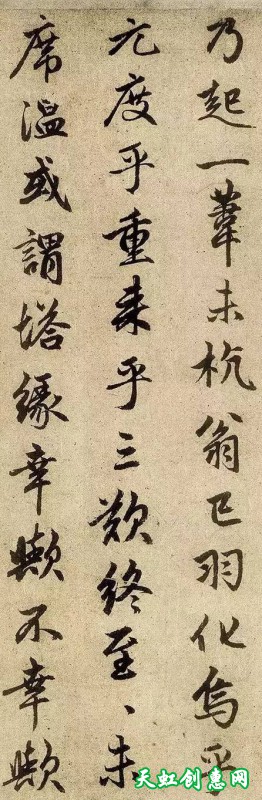 乃起一葦未杭翁已羽化烏乎
元度乎重来乎三歎終至〻未
席温或謂塔緣幸歟不幸歟
天虹创惠网